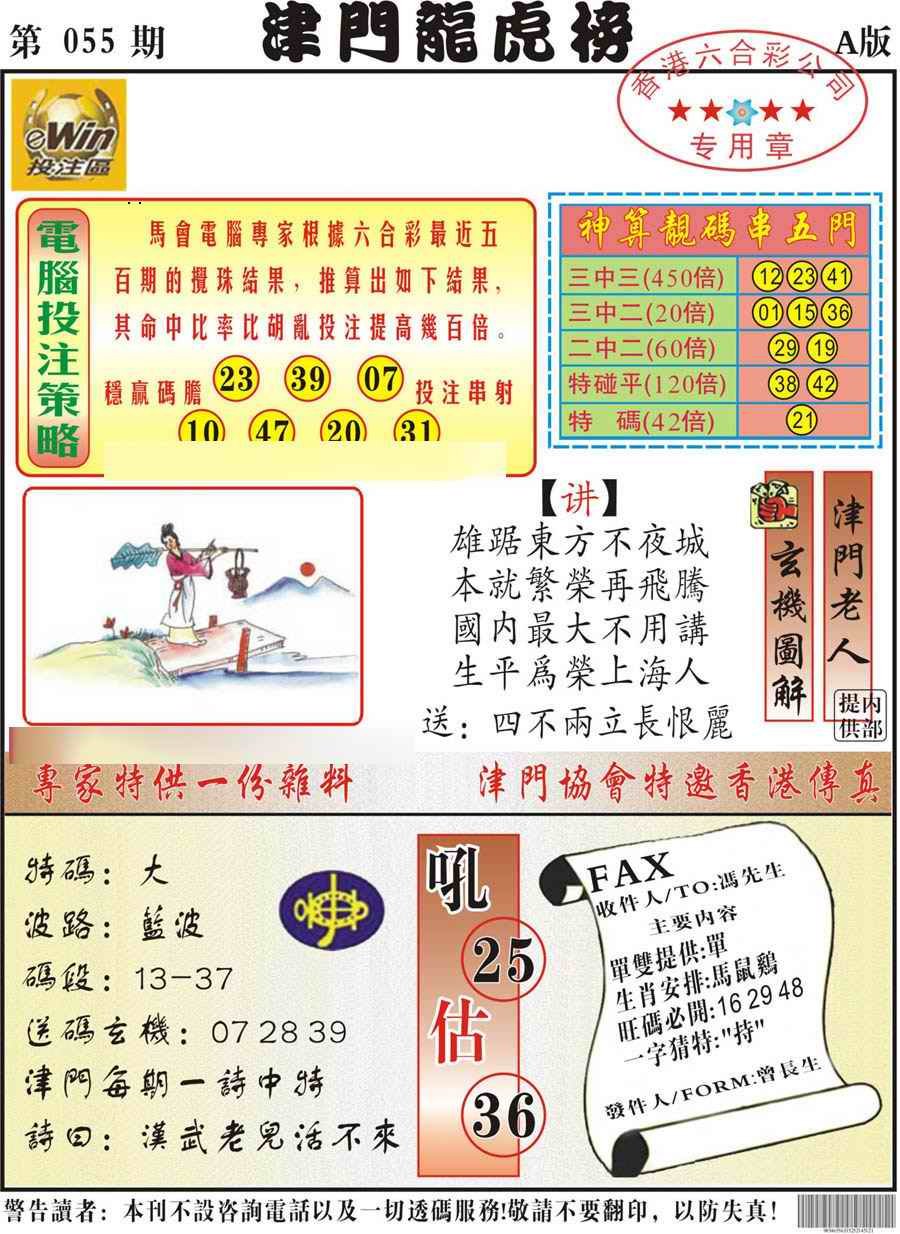 第 055 期
津門龍虎榜
A版
香港六合彩公司
专用章
eWin
投注區
電腦投注策略
馬會電腦專家根據六合彩最近五
百期的攪珠結果，推算出如下結果，
其命中比率比胡亂投注提高幾百倍。
穩贏碼膽 23 39 07 投注串射
10 47 20 31
神算靚碼串五門
三中三(450倍) 12 23 41
三中二(20倍) 01 15 36
二中二(60倍) 29 19
特碰平(120倍) 38 42
特 碼(42倍) 21
【讲】
雄踞東方不夜城
本就繁榮再飛騰
國内最大不用講
生平爲榮上海人
送：四不兩立長恨麗
玄機圖解
津門老人
内部提供
專家特供一份雜料
津門協會特邀香港傳真
特碼：大
波路：藍波
碼段：13-37
送碼玄機：07 28 39
津門每期一詩中特
詩曰：漢武老兒活不來
吼
25
估
36
FAX
收件人/TO:馮先生
主要内容
單雙提供:單
生肖安排:馬鼠鷄
旺碼必開:16 29 48
一字猜特:"持"
發件人/FORM:曾長生
警告讀者：本刊不設咨詢電話以及一切透碼服務!敬請不要翻印，以防失真！